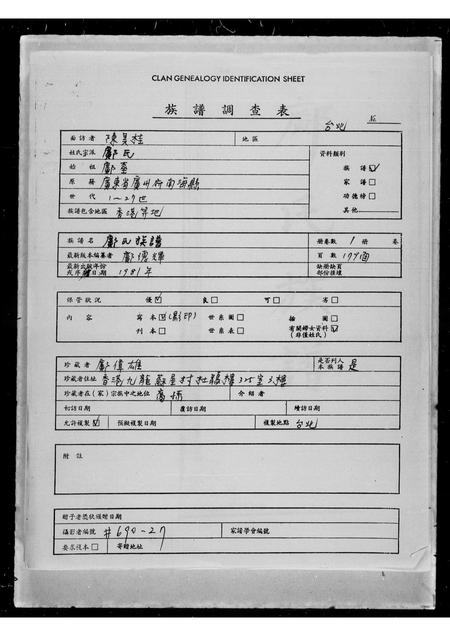 CLAN GENEALOGY IDENTIFICATION SHEET
族譜調查表
台北
面訪者 陳昊桂 地區
姓氏宗派 鄺氏 資料類別
始祖 族譜 ☑
原籍 廣東省廣州府南海縣 家譜 □
世代 1~27世 功德榜 □
族譜包含地區 香港等地 其他
族譜名 鄺氏族譜 冊卷數 1 冊 卷
最新版本編纂者 頁數
最新出版年份 1981年 缺冊缺頁
部份註壞
保管狀況 優 ☑ 良 □ 可 □ 劣 □
內容 寫本 ☑ (影印) 世系圖 □ 插圖 □
刊本 □ 世系表 □ 有關婦女資料 ☑
(非僅姓氏)
珍藏者 鄺偉雄 是否列入 是
本族譜
珍藏者住址 香港九龍蘇屋村杜鵑樓
珍藏者在(家)宗族中之地位 介紹者
初訪日期 覆訪日期 續訪日期
允許複製 ☑ 預擬複製日期 複製地點 台北
附註
贈予者獎狀頒贈日期
攝影者編號 #690-27 家譜學會編號
要求複本 □ 寄贈地址